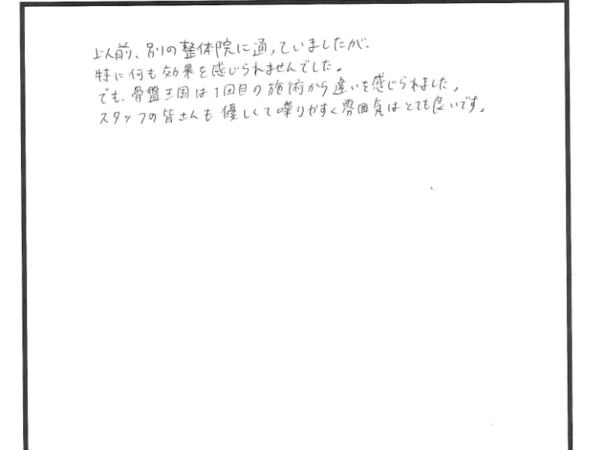 以前、別の整体院に通っていましたが、
特に何も効果を感じられませんでした。
でも、骨盤王国は1回目の施術から違いを感じられました。
スタッフの皆さんも優しくて喋りやすく雰囲気はとても良いです。